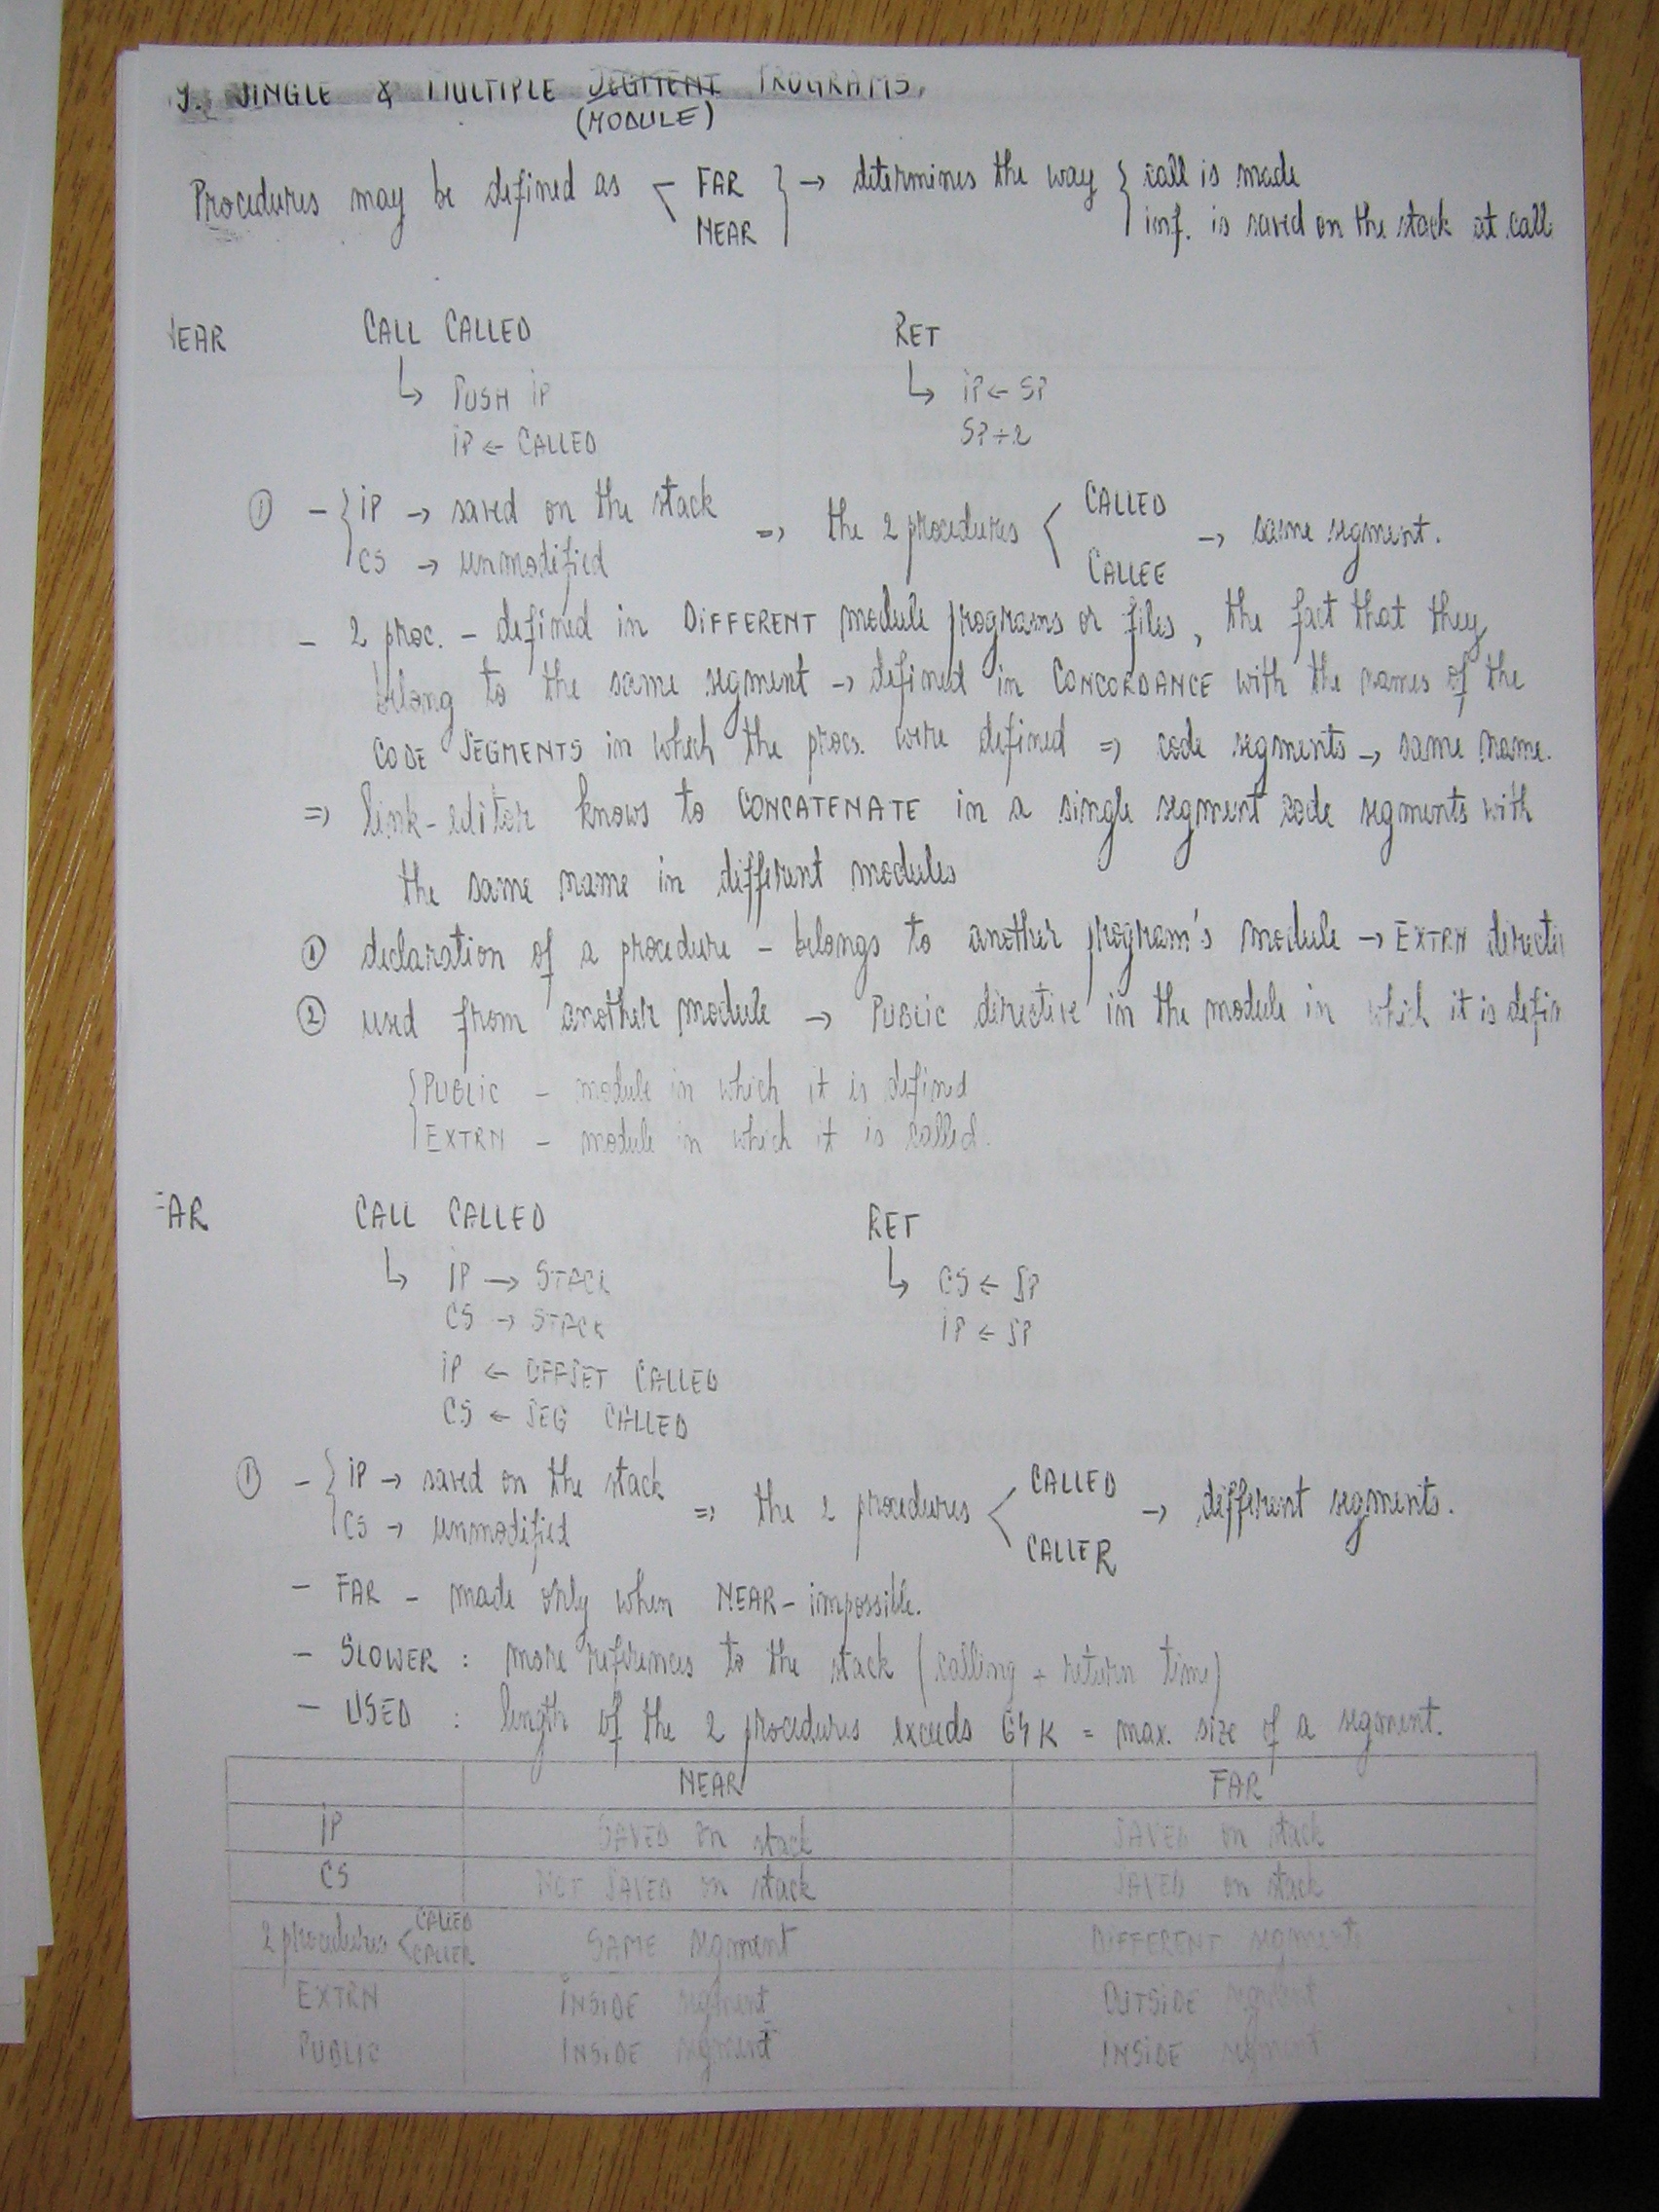 9. SINGLE & MULTIPLE SEGMENT PROGRAMS.
(MODULE)
Procedures may be defined as < FAR } → determines the way { call is made
NEAR inf. is saved on the stack at call
NEAR CALL CALLED RET
↳ PUSH IP ↳ IP ← SP
IP ← CALLED SP+2
① - { IP → saved on the stack => the 2 procedures < CALLED → same segment.
CS → unmodified CALLEE
- 2 proc. - defined in DIFFERENT module programs or files, the fact that they
belong to the same segment → defined in CONCORDANCE with the names of the
CODE SEGMENTS in which the procs. were defined => code segments → same name.
=> link-editor knows to CONCATENATE in a single segment code segments with
the same name in different modules
① declaration of a procedure - belongs to another program's module → EXTRN directi
② used from another module → PUBLIC directive in the module in which it is defin
{ PUBLIC - module in which it is defined
EXTRN - module in which it is called.
FAR CALL CALLED RET
↳ IP → STACK ↳ CS ← SP
CS → STACK IP ← SP
IP ← OFFSET CALLED
CS ← SEG CALLED
① - { IP → saved on the stack => the 2 procedures < CALLED → different segments.
CS → unmodified CALLER
- FAR - made only when NEAR - impossible.
- SLOWER : more references to the stack (calling + return time)
- USED : length of the 2 procedures exceeds 64K = max. size of a segment.
NEAR FAR
IP SAVED on stack SAVED on stack
CS NOT SAVED on stack SAVED on stack
2 procedures < CALLED CALLER SAME segment DIFFERENT segments
EXTRN INSIDE segment OUTSIDE segment
PUBLIC INSIDE segment INSIDE segment